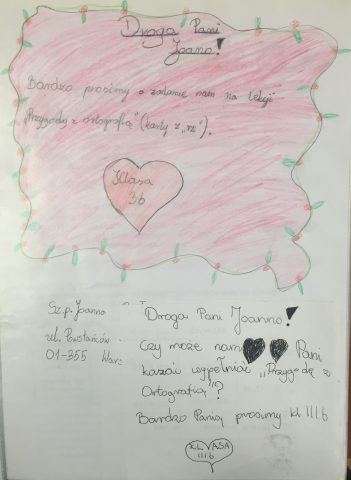 Droga Pani
Joanno!
Bardzo prosimy o zadanie nam na lekcji
"Przygody z ortografią" (karty z „rz").
Klasa
3b
Sz.p. Joanna
ul. Powstańców
01-355
Droga Pani Joanno!
Czy może nam Pani
kazać wypełniać „Przygodę z
Ortografią"?
Bardzo Panią prosimy kl. IIIb
KLASA
IIIb